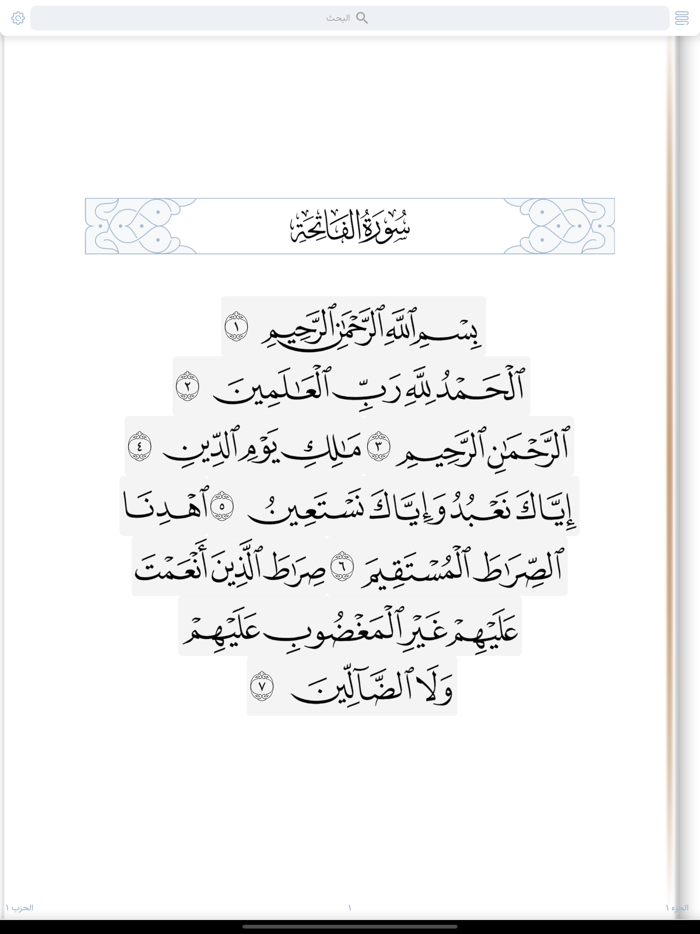 البحث
سُورَةُ الفَاتِحَةِ
بِسۡمِ ٱللَّهِ ٱلرَّحۡمَٰنِ ٱلرَّحِيمِ ١
ٱلۡحَمۡدُ لِلَّهِ رَبِّ ٱلۡعَٰلَمِينَ ٢
ٱلرَّحۡمَٰنِ ٱلرَّحِيمِ ٣ مَٰلِكِ يَوۡمِ ٱلدِّينِ ٤
إِيَّاكَ نَعۡبُدُ وَإِيَّاكَ نَسۡتَعِينُ ٥ ٱهۡدِنَا
ٱلصِّرَٰطَ ٱلۡمُسۡتَقِيمَ ٦ صِرَٰطَ ٱلَّذِينَ أَنۡعَمۡتَ
عَلَيۡهِمۡ غَيۡرِ ٱلۡمَغۡضُوبِ عَلَيۡهِمۡ
وَلَا ٱلضَّآلِّينَ ٧
الجزء ١ ١ الحزب ١